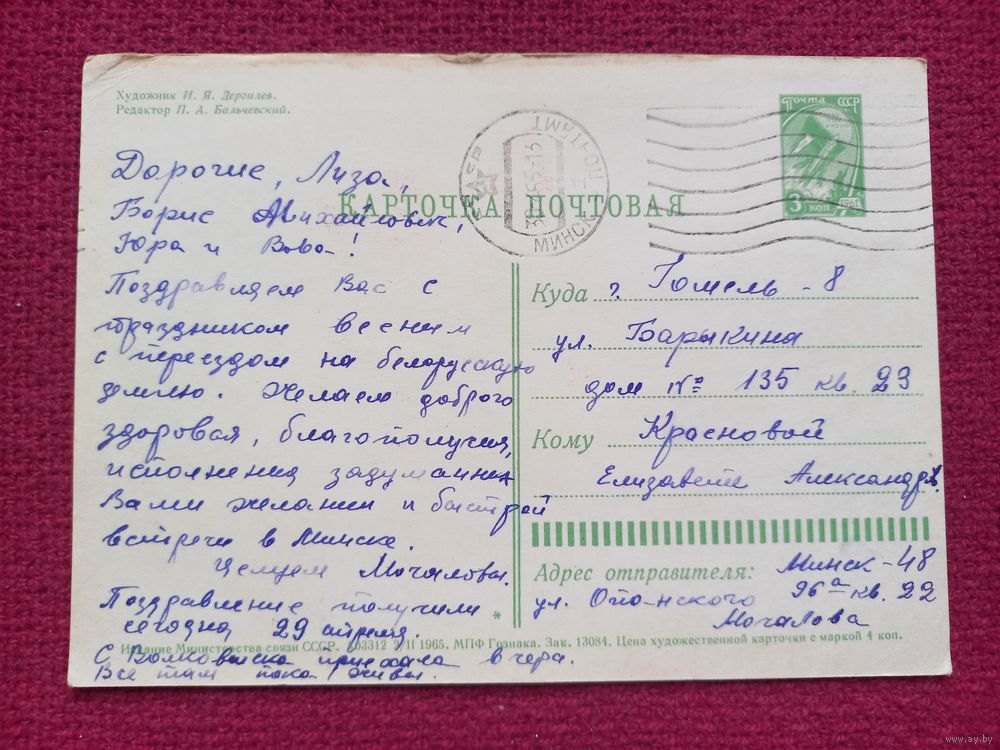 Художник И. Я. Дергилев.
Редактор П. А. Бальчевский.
Почта СССР
3 коп 1961
МИНСК ПОЧТАМТ
КАРТОЧКА ПОЧТОВАЯ
Дорогие, Лиза,
Борис Михайлович,
Юра и Вова!
Поздравляем Вас с
праздником весны и
с переездом на белорусскую
землю. Желаем доброго
здоровья, благополучия,
исполнения задуманных
Вами желаний и быстрой
встречи в Минске.
Целуем Мочаловы.
Поздравление получили
сегодня 29 апреля.
С Волковыска приехала вчера.
Все там пока живы.
Куда г. Гомель - 8
ул. Барыкина
дом № 135 кв. 23
Кому Красновой
Елизавете Александр.
Адрес отправителя: Минск-48
ул. Опанского 96а кв. 22
Мочалова
Издание Министерства связи СССР. 3/II 1965. МПФ Гознака. Зак. 13084. Цена художественной карточки с маркой 4 коп.
www.ay.by